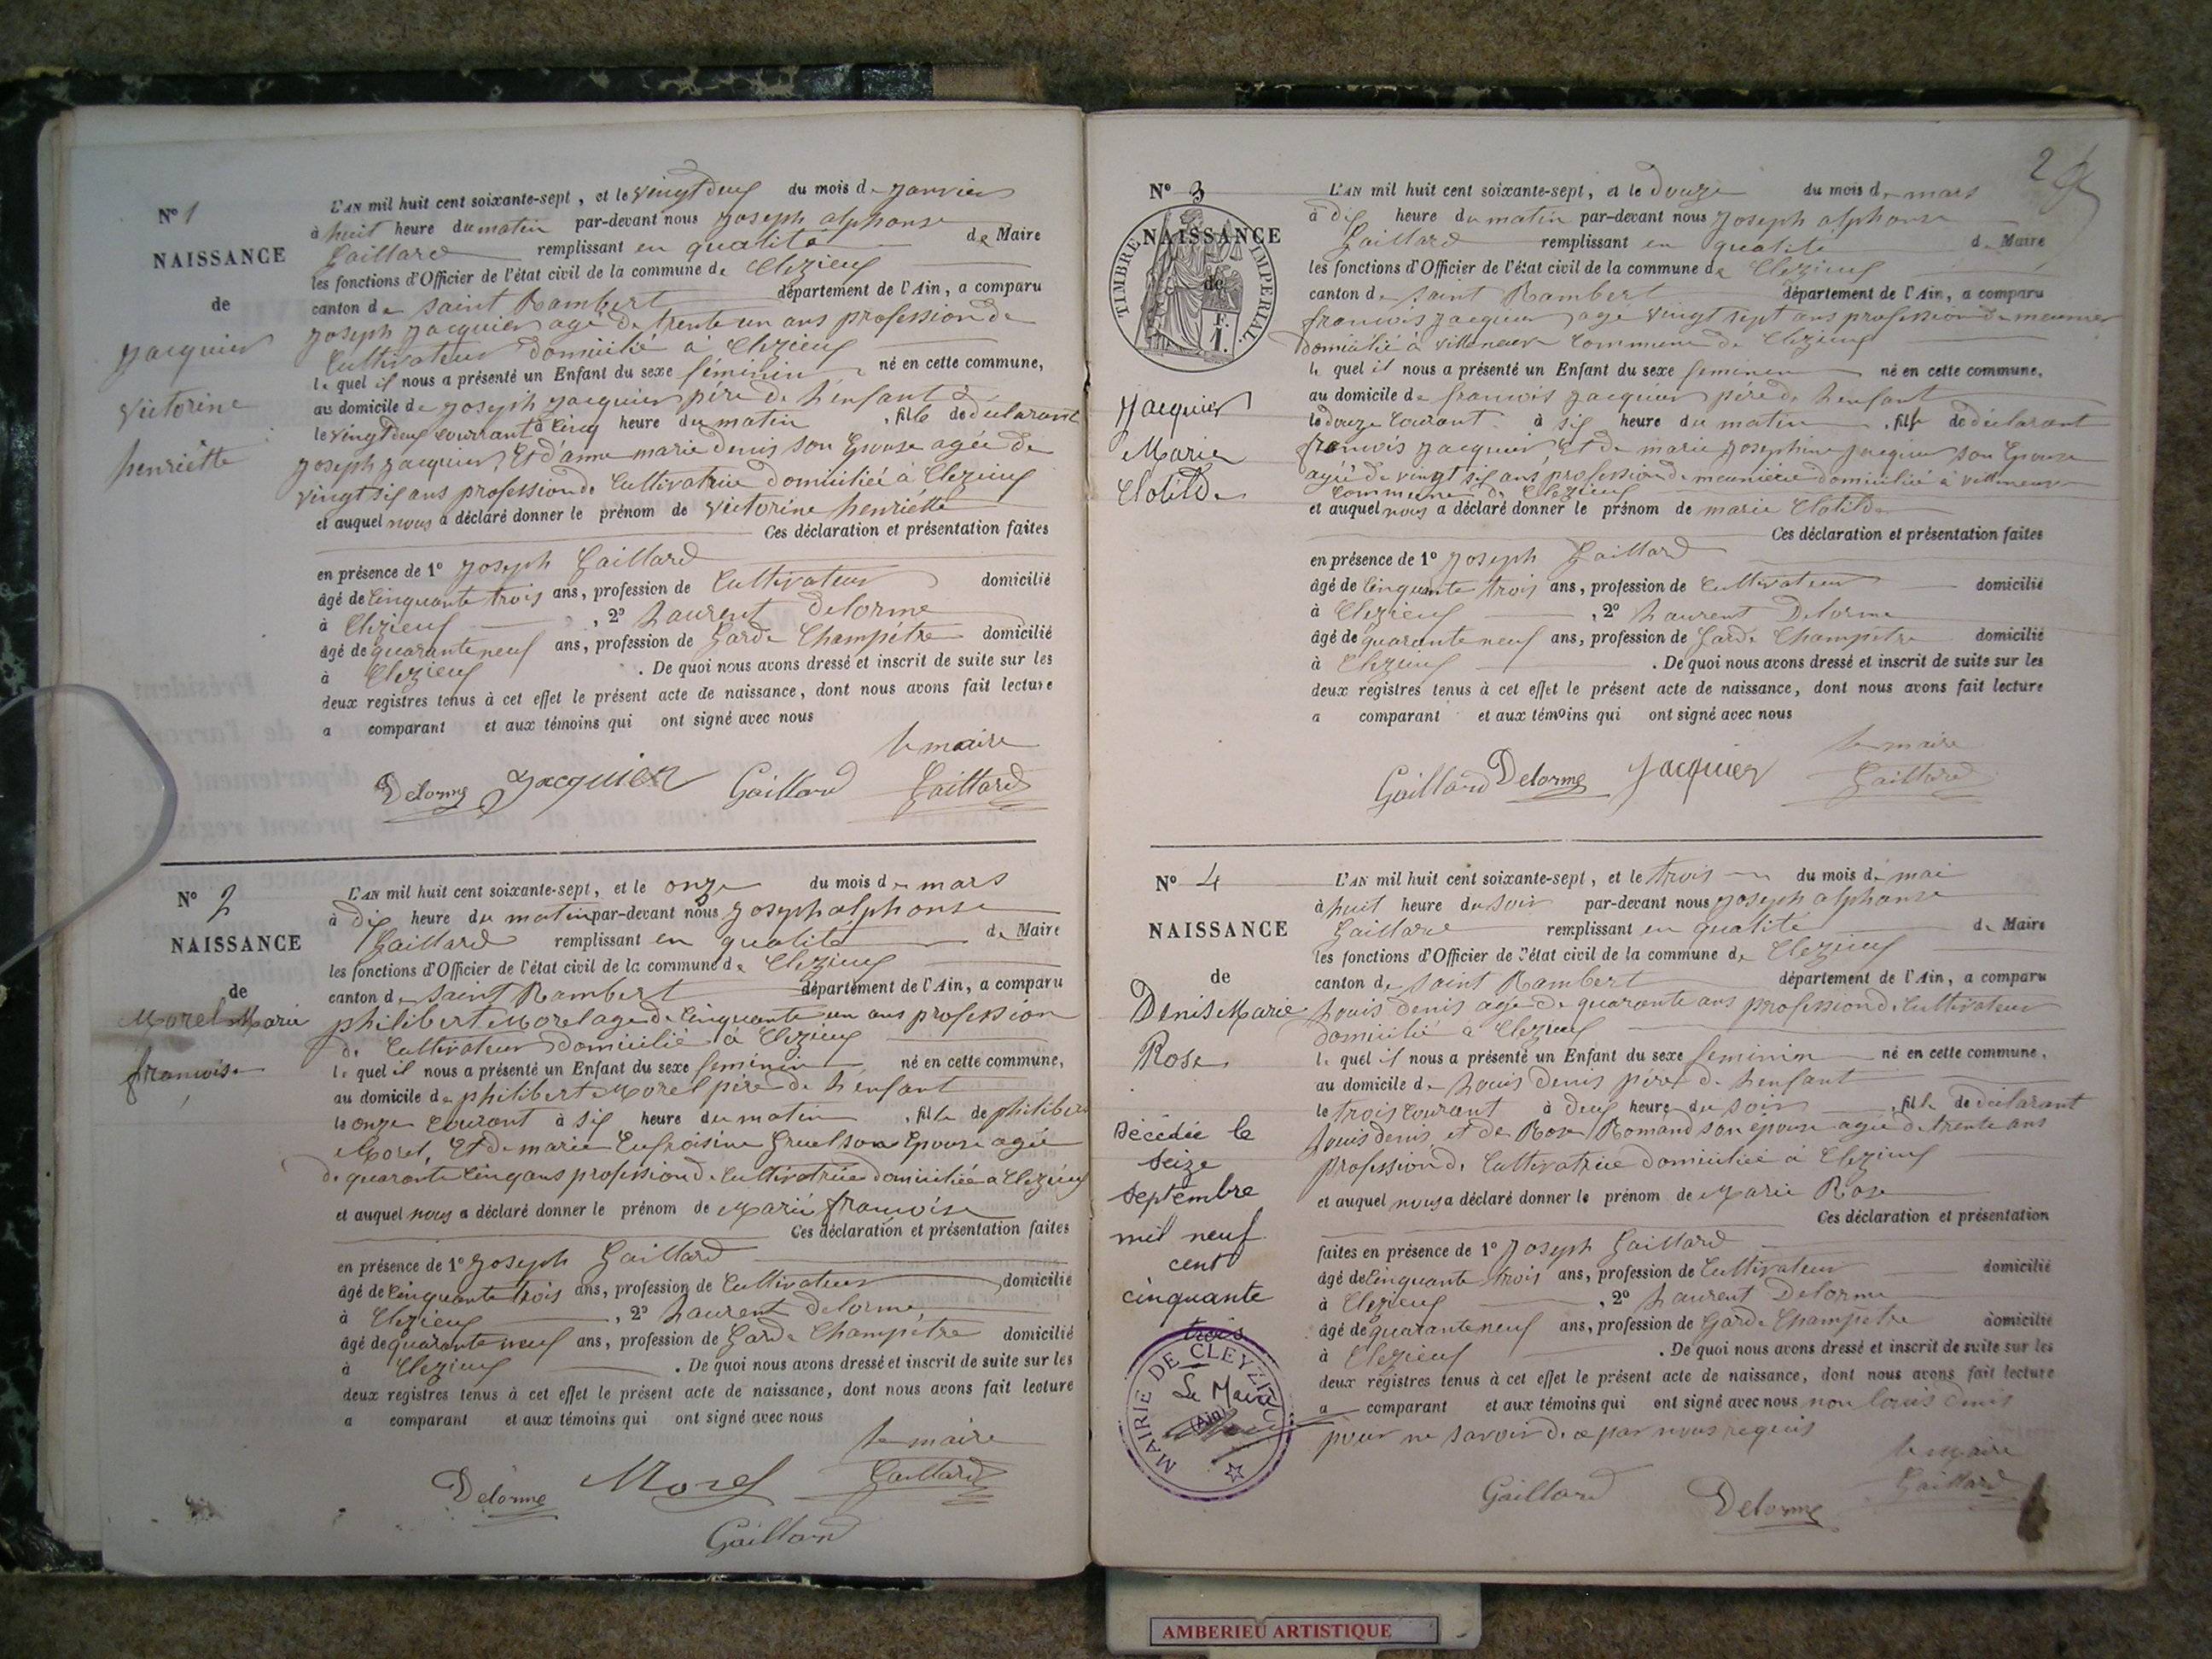 N° 1
NAISSANCE
de
Jacquier
Victorine
henriétte
L'AN mil huit cent soixante-sept, et le vingt deux du mois de janvier
à huit heure du matin par-devant nous Joseph alphonse
Gaillard remplissant en qualité de Maire
les fonctions d'Officier de l'état civil de la commune de Clezieux
canton de Saint Rambert département de l'Ain, a comparu
Joseph Jacquier agé de trente un ans profession de
Cultivateur domicilié à Clezieux
le quel il nous a présenté un Enfant du sexe féminin né en cette commune,
au domicile de Joseph Jacquier père de l'enfant
le vingt deux courrant à cinq heure du matin, fille de declarant
Joseph Jacquier, Et d'anne marie denis son Epouse agée de
vingt six ans profession de Cultivatrice domiciliée à Clezieux
et auquel nous a déclaré donner le prénom de victorine henriétte
Ces déclaration et présentation faites
en présence de 1° Joseph Gaillard
âgé de Cinquante trois ans, profession de Cultivateur domicilié
à Clezieux, 2° Laurent Delorme
âgé de quarante neuf ans, profession de Garde Champétre domicilié
à Clezieux. De quoi nous avons dressé et inscrit de suite sur les
deux registres tenus à cet effet le présent acte de naissance, dont nous avons fait lecture
a comparant et aux témoins qui ont signé avec nous
le maire
Delorme Jacquier Gaillard Gaillard
N° 2
NAISSANCE
de
Morel Marie
francoise
L'AN mil huit cent soixante-sept, et le onze du mois de mars
à dix heure du matin par-devant nous Joseph alphonse
Gaillard remplissant en qualité de Maire
les fonctions d'Officier de l'état civil de la commune de Clezieux
canton de Saint Rambert département de l'Ain, a comparu
philibert Morel age de Cinquante un ans profession
de Cultivateur domicilié à Clezieux
le quel il nous a présenté un Enfant du sexe feminin né en cette commune,
au domicile de philibert Morel père de l'enfant
le onze Courant à six heure du matin, fille de philibert
Morel, Et de marie Eufroisine Gruel son Epouse agée
de quarante Cinq ans profession de Cultivatrice domiciliée a Clezieux
et auquel nous a déclaré donner le prénom de Marie françoise
Ces déclaration et présentation faites
en présence de 1° Joseph Gaillard
âgé de Cinquante trois ans, profession de Cultivateur domicilié
à Clezieux, 2° Laurent Delorme
âgé de quarante neuf ans, profession de Garde Champétre domicilié
à Clezieux. De quoi nous avons dressé et inscrit de suite sur les
deux registres tenus à cet effet le présent acte de naissance, dont nous avons fait lecture
a comparant et aux témoins qui ont signé avec nous
le maire
Delorme Morel Gaillard
Gaillard
2
N° 3
NAISSANCE
de
TIMBRE IMPERIAL
1 F.
Jacquier
Marie
Clotilde
L'AN mil huit cent soixante-sept, et le douze du mois de mars
à dix heure du matin par-devant nous Joseph alphonse
Gaillard remplissant en qualité de Maire
les fonctions d'Officier de l'état civil de la commune de Clezieux
canton de Saint Rambert département de l'Ain, a comparu
francois Jacquier age vingt sept ans profession de meunier
domicilié à villeneuve Commune de Clezieux
le quel il nous a présenté un Enfant du sexe feminin né en cette commune,
au domicile de francois Jacquier père de l'enfant
le douze Courant à six heure du matin, fille de declarant
francois Jacquier, Et de marie Josephine Jacquier son Epouse
agée de vingt six ans profession de meunière domicilié à villeneuve
Commune de Clezieux
et auquel nous a déclaré donner le prénom de marie Clotilde
Ces déclaration et présentation faites
en présence de 1° Joseph Gaillard
âgé de Cinquante trois ans, profession de Cultivateur domicilié
à Clezieux, 2° Laurent Delorme
âgé de quarante neuf ans, profession de Garde Champetre domicilié
à Clezieux. De quoi nous avons dressé et inscrit de suite sur les
deux registres tenus à cet effet le présent acte de naissance, dont nous avons fait lecture
a comparant et aux témoins qui ont signé avec nous
le maire
Gaillard Delorme Jacquier Gaillard
N° 4
NAISSANCE
de
Denis Marie
Rose
Décédée le
seize
septembre
mil neuf
cent
cinquante
trois
Le Maire
MAIRIE DE CLEYZIEU
(Ain)
L'AN mil huit cent soixante-sept, et le trois du mois de mai
à huit heure du soir par-devant nous Joseph alphonse
Gaillard remplissant en qualité de Maire
les fonctions d'Officier de l'état civil de la commune de Clezieux
canton de Saint Rambert département de l'Ain, a comparu
Louis denis age de quarante ans profession de Cultivateur
domicilié a Clezieux
le quel il nous a présenté un Enfant du sexe feminin né en cette commune,
au domicile de Louis denis père de l'enfant
le trois courant à deux heure du soir, fille de declarant
Louis denis et de Rose Romand son epouse agée de trente ans
profession de Cultivatrice domiciliée à Clezieux
et auquel nous a déclaré donner le prénom de Marie Rose
Ces déclaration et présentation
faites en présence de 1° Joseph Gaillard
âgé de Cinquante trois ans, profession de Cultivateur domicilié
à Clezieux, 2° Laurent Delorme
âgé de quarante neuf ans, profession de Garde Champetre domicilié
à Clezieux. De quoi nous avons dressé et inscrit de suite sur les
deux registres tenus à cet effet le présent acte de naissance, dont nous avons fait lecture
a comparant et aux témoins qui ont signé avec nous non louis denis
pour ne savoir de ce par nous requis
le Maire
Gaillard Delorme Gaillard
AMBERIEU ARTISTIQUE